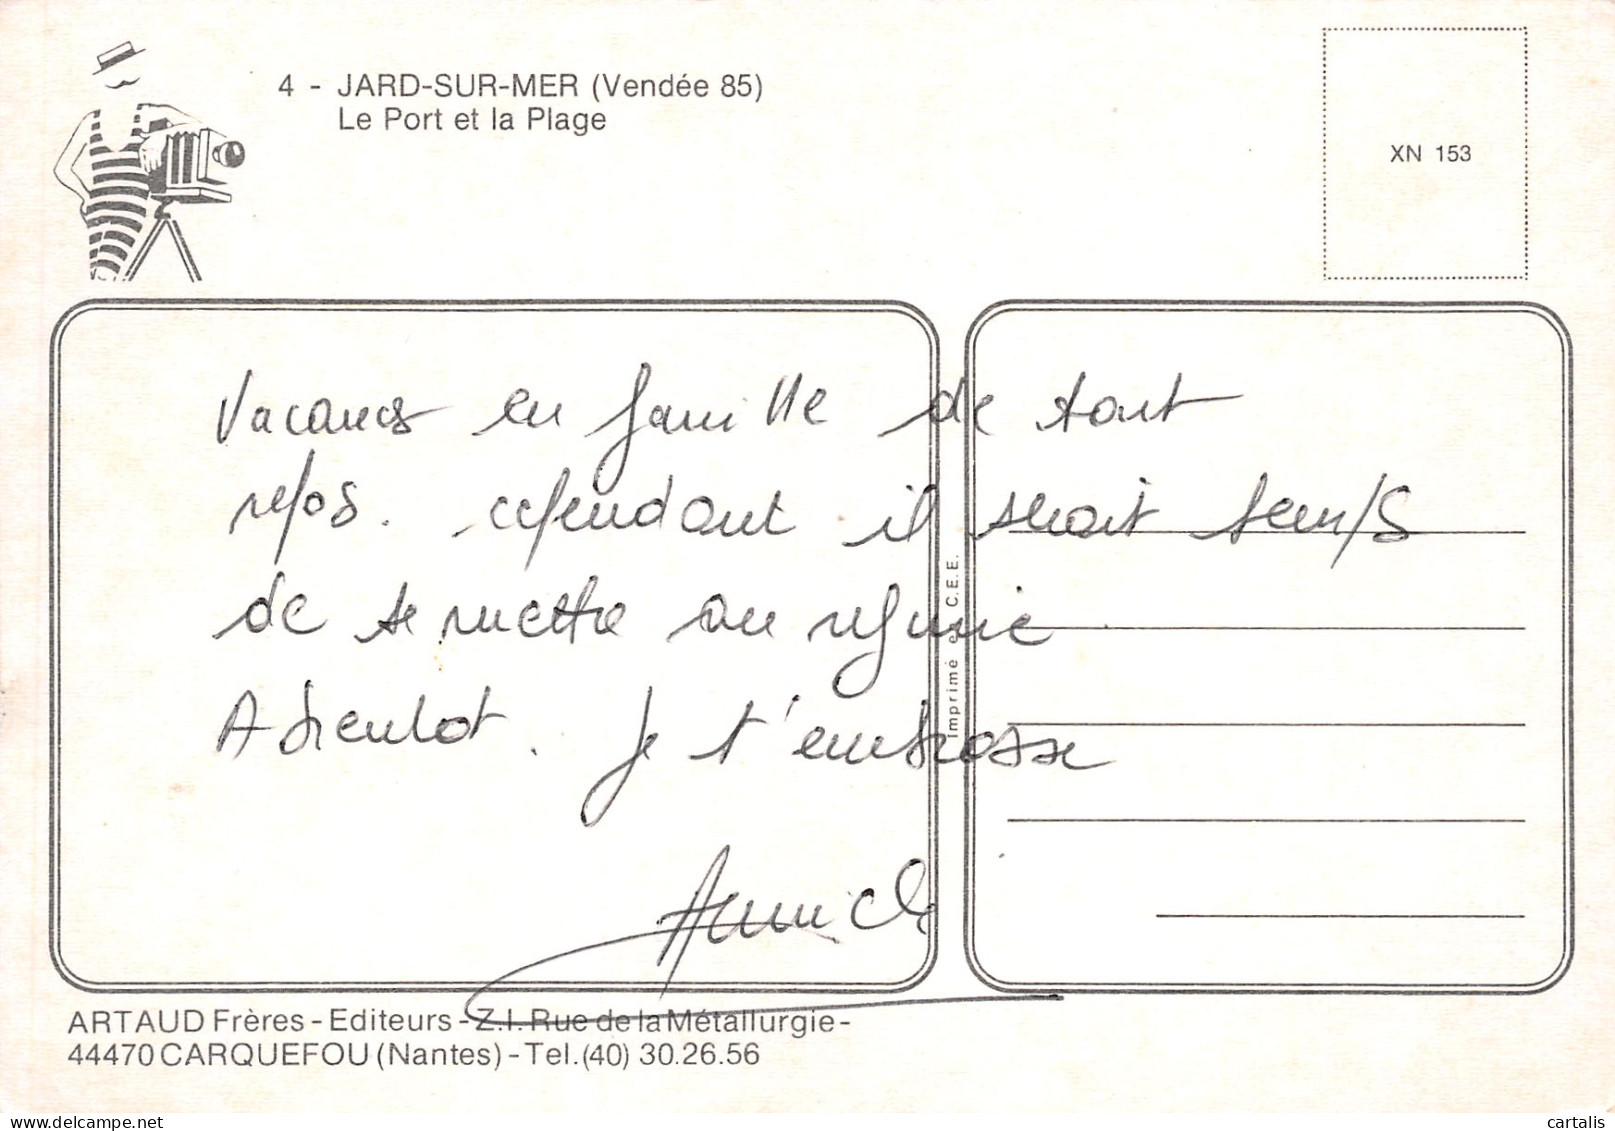 4 - JARD-SUR-MER (Vendée 85)
Le Port et la Plage
XN 153
Vacances en famille de tout
repos. cependant il serait temps
de se mettre au régime
A bientot. je t'embrasse
Annick
Imprimé en C.E.E.
ARTAUD Frères - Editeurs - Z.I. Rue de la Métallurgie -
44470 CARQUEFOU (Nantes) - Tel. (40) 30.26.56
cartalis